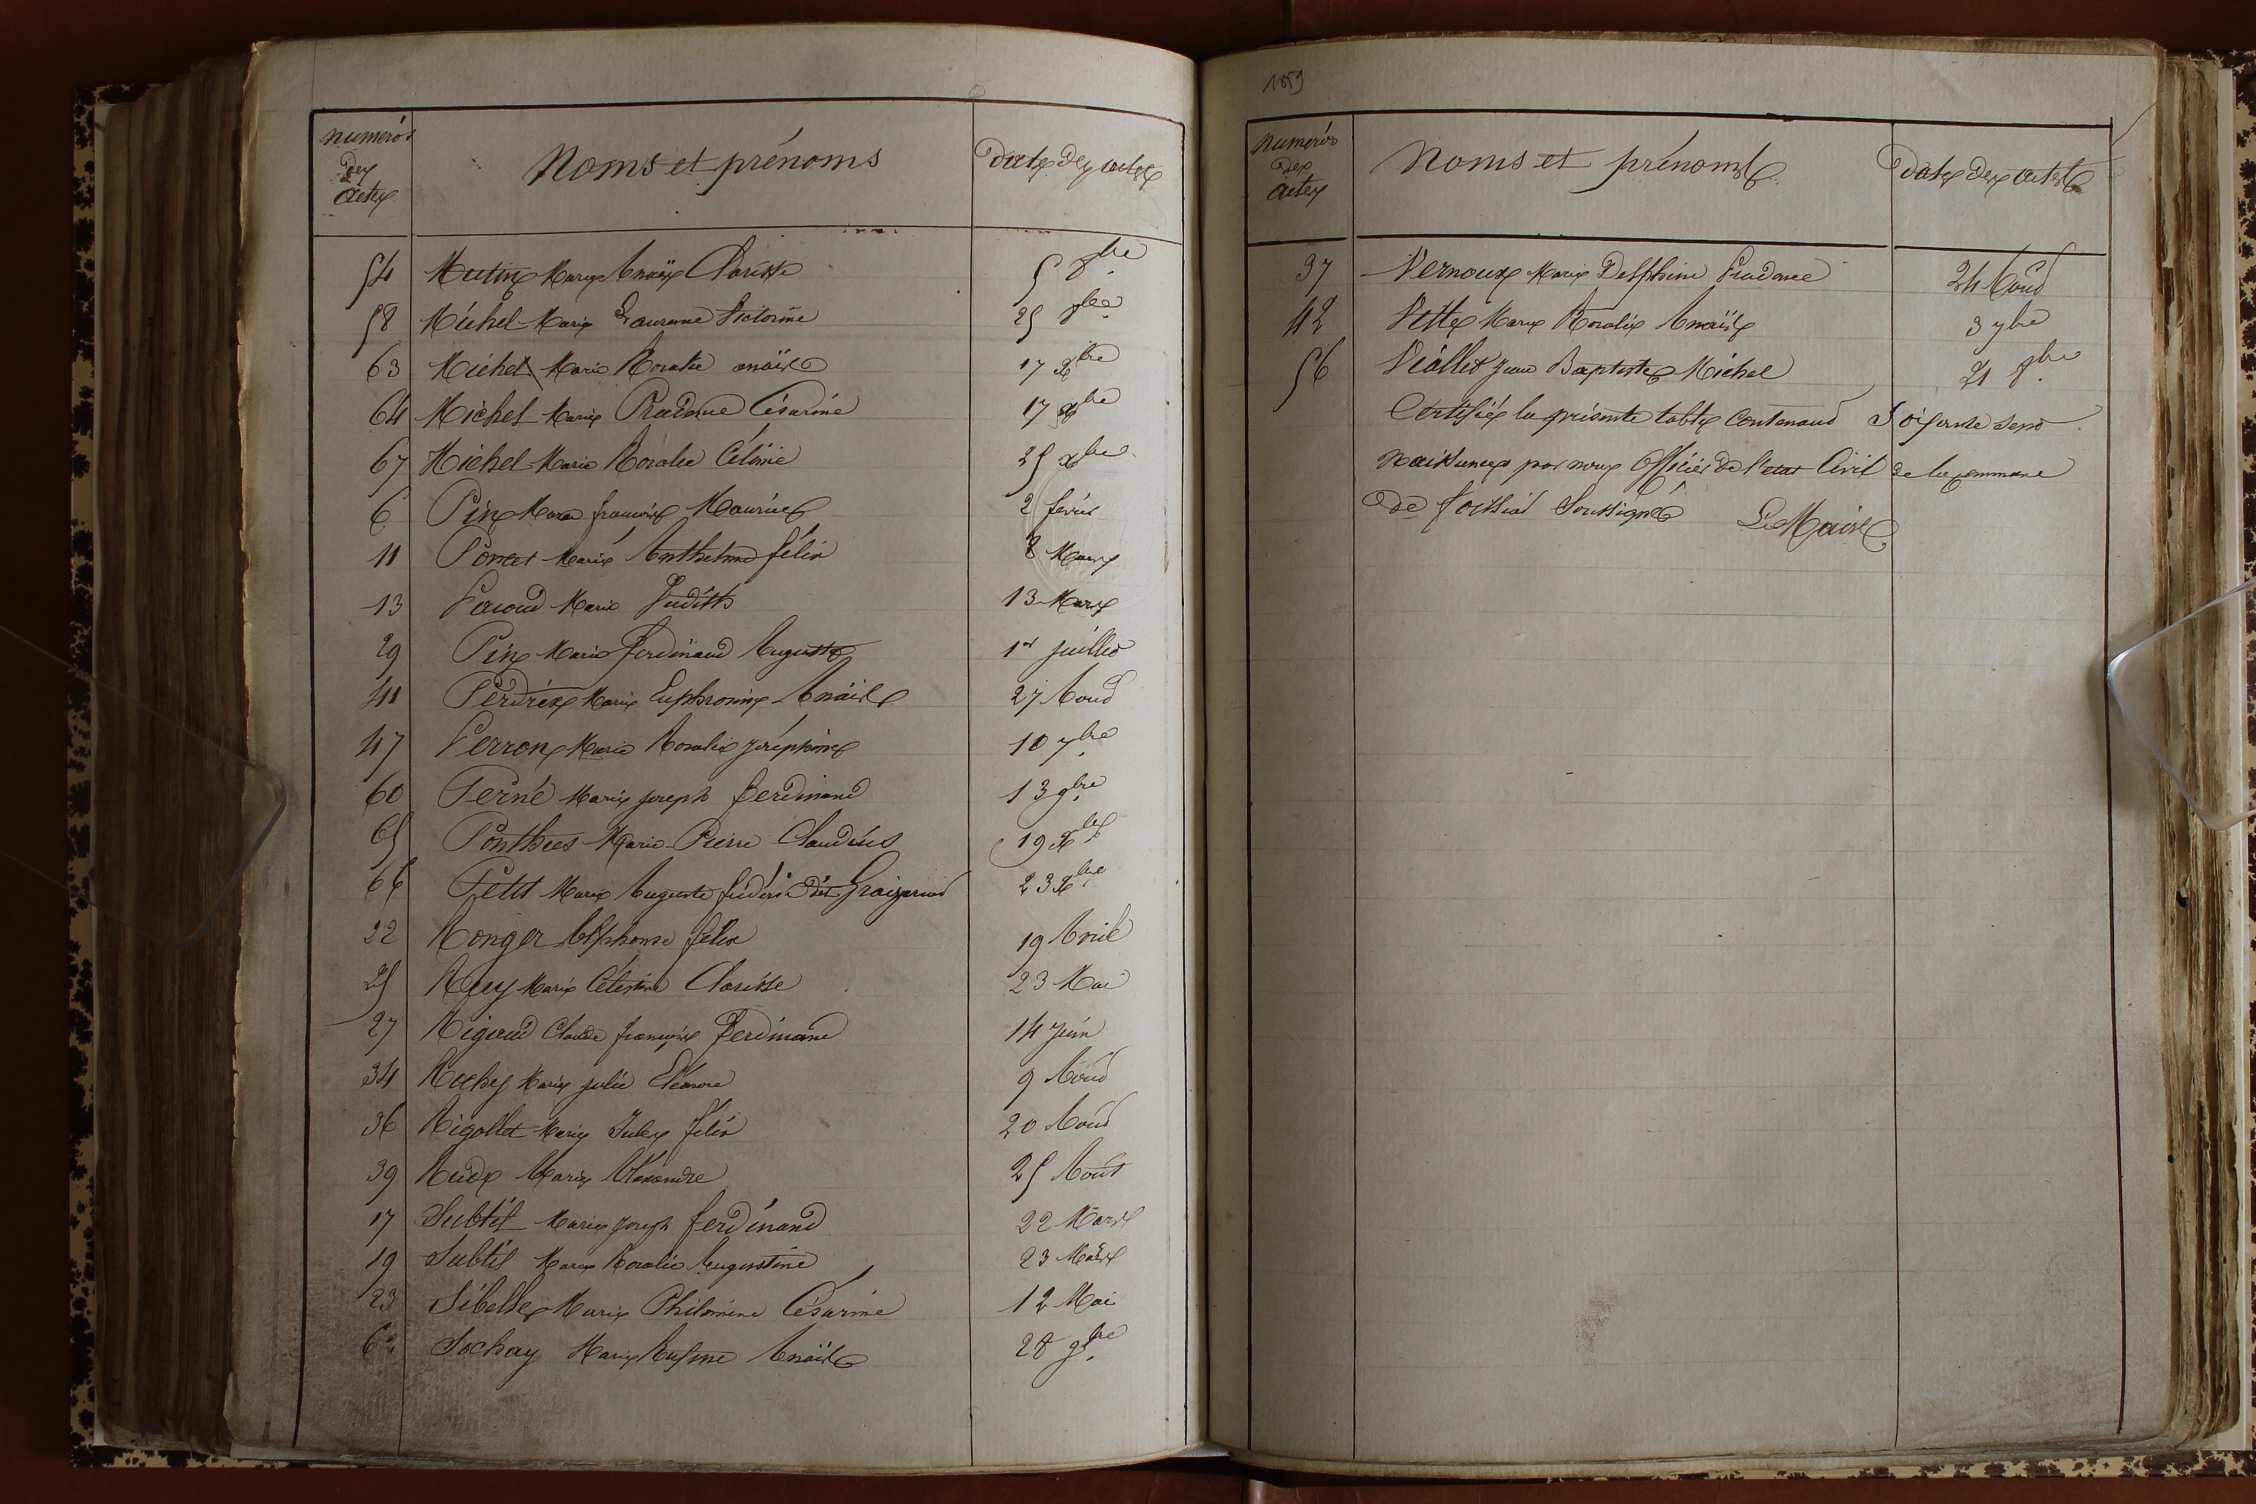 numeros des actes
Noms et prénoms
Dates des actes
54 Mutin Marie Anaïs Clarisse 5 8bre
58 Michel Marie Laurance Victorine 25 8bre
63 Michel Marie Rosalie anaïs 17 Xbre
64 Michel Marie Prudence Césarine 17 Xbre
67 Michel Marie Rosalie Célinie 25 Xbre
6 Pin Marie françois Maurice 2 fevrier
11 Poncet Marie Anthelme félix 8 Mars
13 Peroud Marie Judith 13 Mars
29 Pin Marie Ferdinand Auguste 1er juillet
41 Perdrix Marie Euphronine Anaïs 27 Aout
47 Perron Marie Rosalie joséphine 10 7bre
60 Perné Marie joseph Ferdinand 13 9bre
65 Ponthus Marie Pierre Claudius 19 Xbre
66 Petit Marie Auguste fréderic dit 23 Xbre
22 Ronger Alphonse félix 19 Avril
25 Rey Marie Célestine Clarisse 23 Mai
27 Rigaud Claude françois Ferdinand 14 juin
34 Ruchy Marie julie Eléanore 9 Aout
36 Rigollet Marie Jules félix 20 Aout
39 Rude Marie Alexandre 25 Août
17 Subtil Marie joseph ferdinand 22 Mars
19 Subtil Marie Rosalie Augustine 23 Mars
23 Sibelle Marie Philomène Césarine 12 Mai
62 Sochay Marie Rufine Anaïs 28 9bre
1859
numeros des actes
Noms et prénoms
Dates des actes
37 Vernoux Marie Delphine Prudence 24 Aout
42 Vette Marie Rosalie Anaïs 3 7bre
56 Viallet jean Baptiste Michel 21 8bre
Certifiée la présente table contenant Soixante sept
naissances par nous Officier de l'etat Civil de la commune
de Soussigné Le Maire